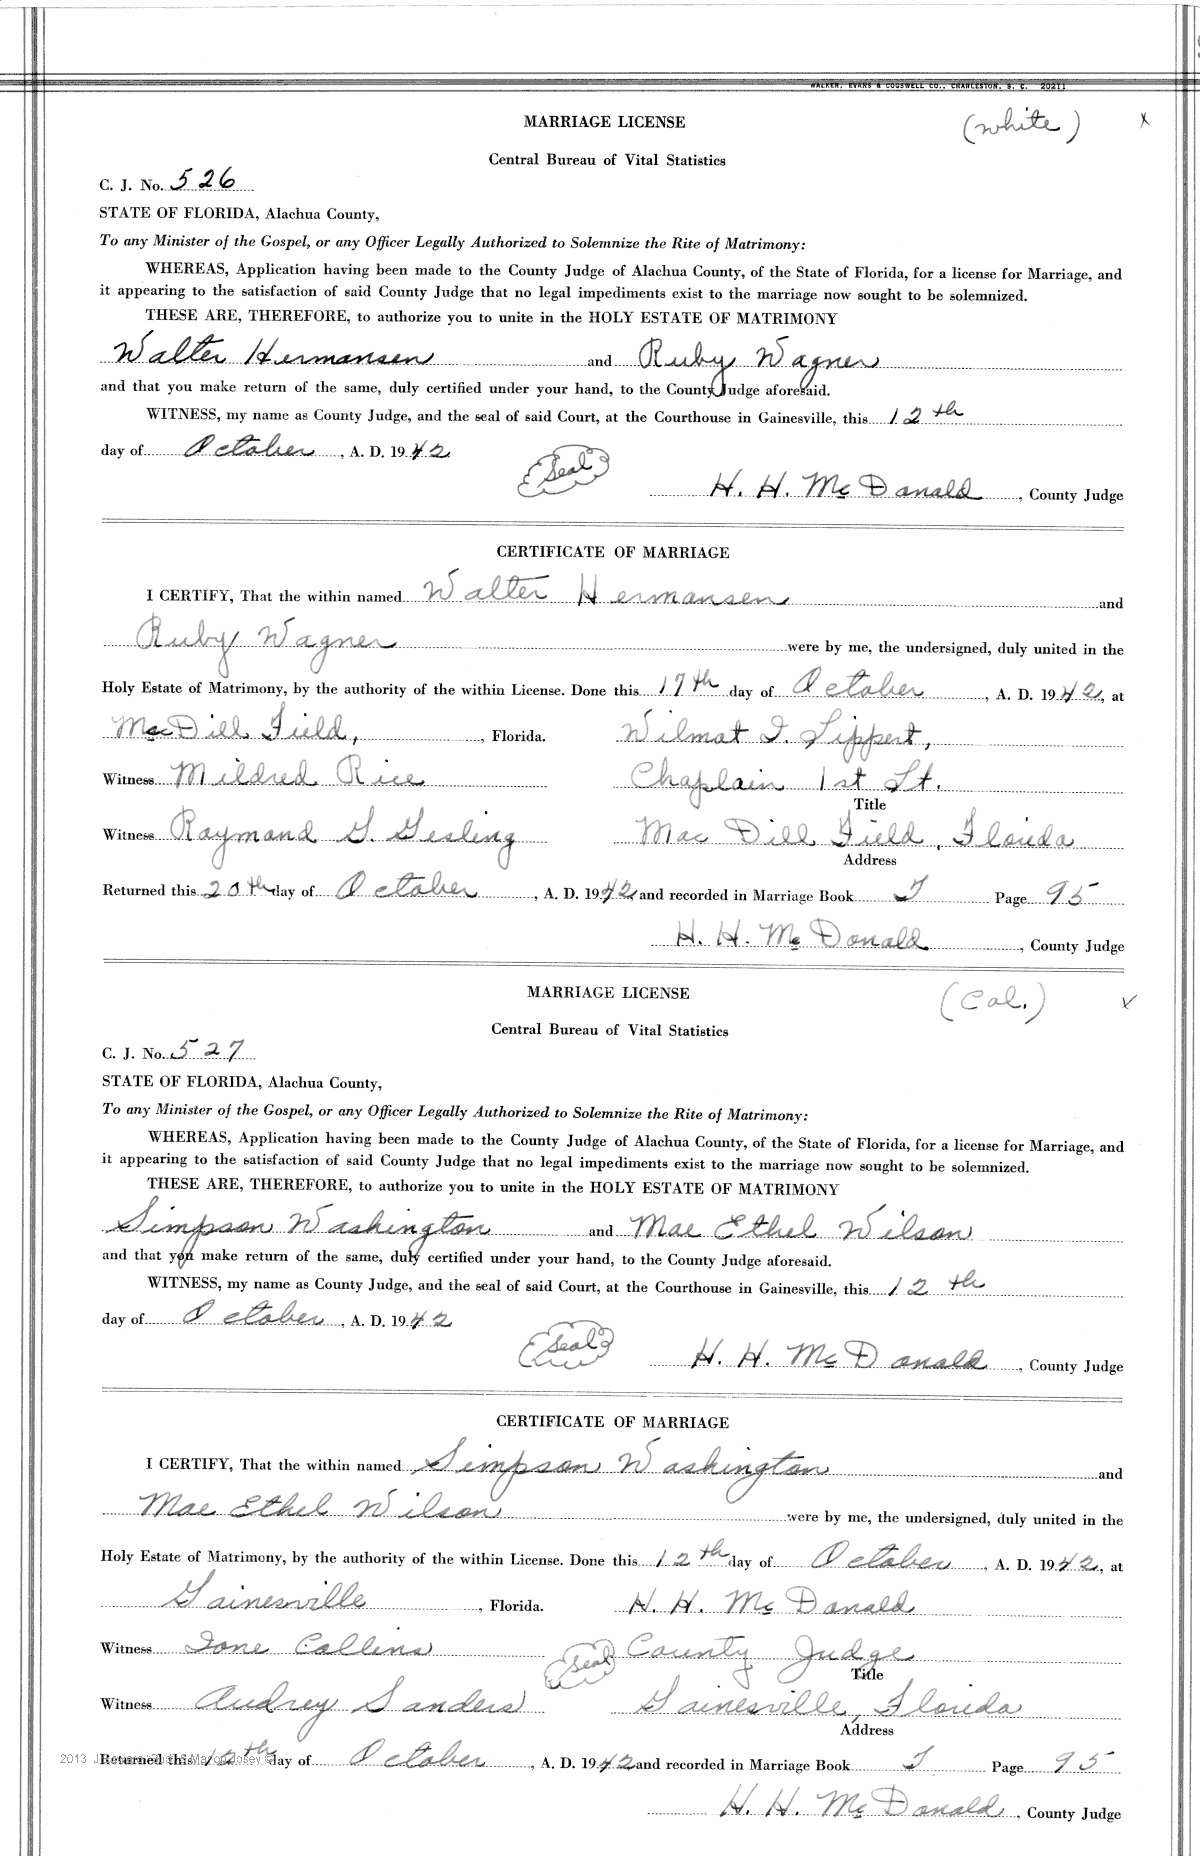 WALKER, EVANS & COGSWELL CO., CHARLESTON, S. C. 20211
MARRIAGE LICENSE (white) x
Central Bureau of Vital Statistics
C. J. No. 526
STATE OF FLORIDA, Alachua County,
To any Minister of the Gospel, or any Officer Legally Authorized to Solemnize the Rite of Matrimony:
WHEREAS, Application having been made to the County Judge of Alachua County, of the State of Florida, for a license for Marriage, and
it appearing to the satisfaction of said County Judge that no legal impediments exist to the marriage now sought to be solemnized.
THESE ARE, THEREFORE, to authorize you to unite in the HOLY ESTATE OF MATRIMONY
Walter Hermansen and Ruby Wagner
and that you make return of the same, duly certified under your hand, to the County Judge aforesaid.
WITNESS, my name as County Judge, and the seal of said Court, at the Courthouse in Gainesville, this 12th
day of October, A. D. 1942
Seal
H. H. McDonald, County Judge
CERTIFICATE OF MARRIAGE
I CERTIFY, That the within named Walter Hermansen and
Ruby Wagner were by me, the undersigned, duly united in the
Holy Estate of Matrimony, by the authority of the within License. Done this 17th day of October, A. D. 1942, at
MacDill Field, , Florida. Wilmat I. Lippert,
Witness Mildred Rice Chaplain 1st Lt.
Title
Witness Raymond G. Gesling Mac Dill Field, Florida
Address
Returned this 20th day of October, A. D. 1942 and recorded in Marriage Book T Page 95
H. H. McDonald, County Judge
MARRIAGE LICENSE (Col.) x
Central Bureau of Vital Statistics
C. J. No. 527
STATE OF FLORIDA, Alachua County,
To any Minister of the Gospel, or any Officer Legally Authorized to Solemnize the Rite of Matrimony:
WHEREAS, Application having been made to the County Judge of Alachua County, of the State of Florida, for a license for Marriage, and
it appearing to the satisfaction of said County Judge that no legal impediments exist to the marriage now sought to be solemnized.
THESE ARE, THEREFORE, to authorize you to unite in the HOLY ESTATE OF MATRIMONY
Simpson Washington and Mae Ethel Wilson
and that you make return of the same, duly certified under your hand, to the County Judge aforesaid.
WITNESS, my name as County Judge, and the seal of said Court, at the Courthouse in Gainesville, this 12th
day of October, A. D. 1942
Seal
H. H. McDonald, County Judge
CERTIFICATE OF MARRIAGE
I CERTIFY, That the within named Simpson Washington and
Mae Ethel Wilson were by me, the undersigned, duly united in the
Holy Estate of Matrimony, by the authority of the within License. Done this 12th day of October, A. D. 1942, at
Gainesville, Florida. H. H. McDonald
Witness Ione Collins Seal County Judge
Title
Witness Audrey Sanders Gainesville, Florida
Address
2013
Returned this 12th day of October, A. D. 1942 and recorded in Marriage Book T Page 95
H. H. McDonald, County Judge